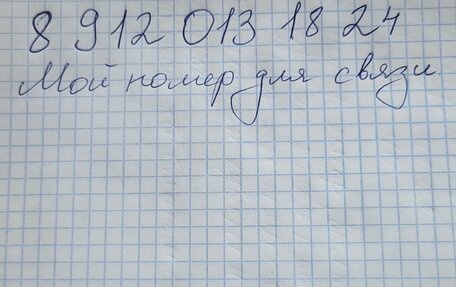 8 912 013 18 24
Мой номер для связи.